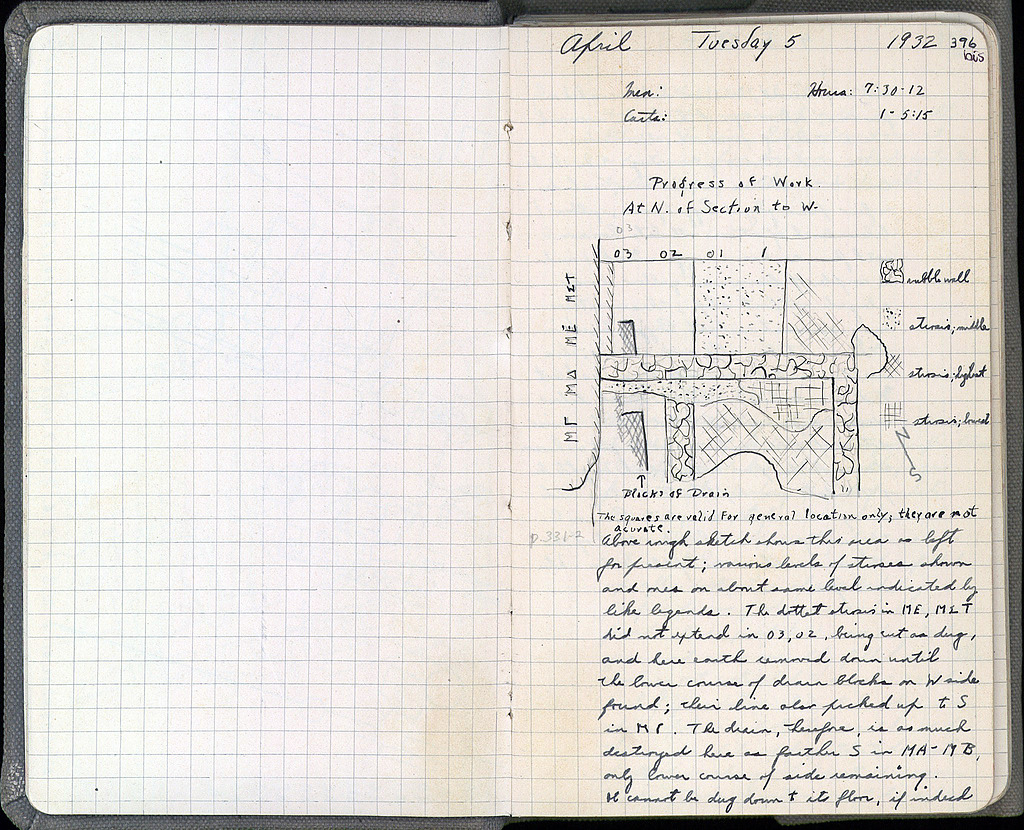 April Tuesday 5 1932 396
bis
Men: Hours: 7:30-12
Carts: 1-5:15
Progress of Work.
At N. of Section to W-
03
03 02 01 1
MΓ MΔ MÉ MΣT
rubble wall
sterosis; middle
sterosis; highest
sterosis; lowest
N
S
Blocks of Drain
The squares are valid for general location only; they are not
acurate.
p. 331-2
Above rough sketch shows this area as left
for present; various levels of steroses shown
and ones on about same level indicated by
like legends. The dottet sterosis in ME, MΣT
did not extend in 03, 02, being cut as dug,
and here earth removed down until
the lower course of drain blocks on W side
found; their line also picked up to S
in MΓ. The drain, therefore, is as much
destroyed here as farther S in MA-MB,
only lower course of side remaining.
It cannot be dug down to its floor, if indeed